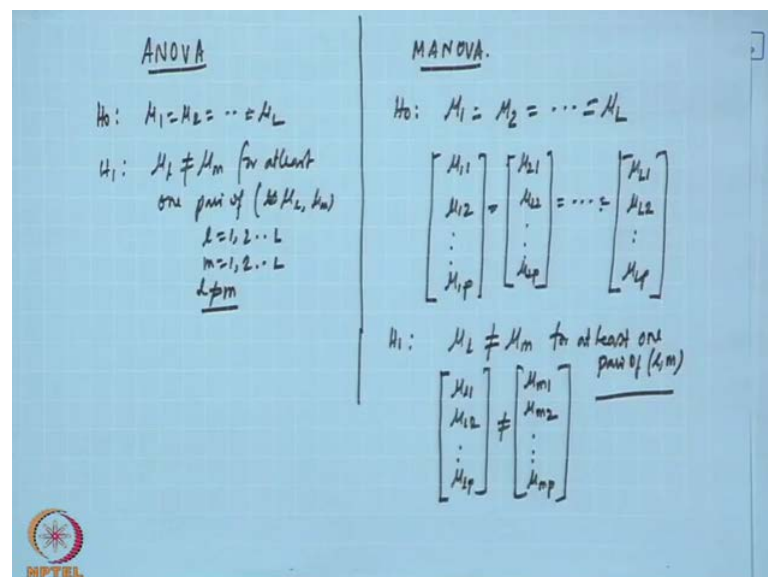 ANOVA
H0: μ1 = μ2 = ... = μL
H1: μl ≠ μm for atleast
one pair of (μl, μm)
l = 1, 2 .. L
m = 1, 2 .. L
l ≠ m
MANOVA.
H0: μ1 = μ2 = ... = μL
[μ11 μ12 : μ1p] = [μ21 μ22 : μ2p] = ... = [μL1 μL2 : μLp]
H1: μl ≠ μm for at least one
pair of (l, m)
[μl1 μl2 : μlp] ≠ [μm1 μm2 : μmp]
NPTEL